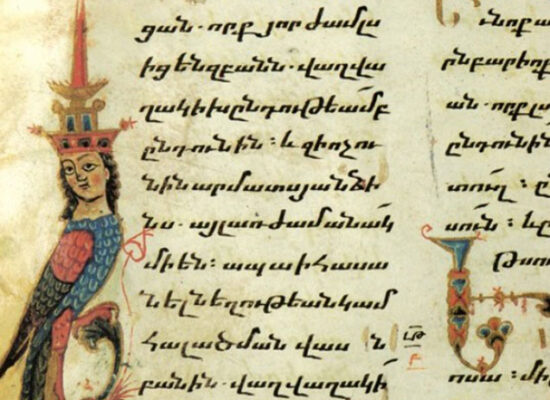 ցան. որք յորժամ լս
իցեն զբանն. վաղվա
ղակի խընդութեամբ
ընդունին : և զի ոչ ու
նին արմատս յանձի
նս. այլ առ ժամանակ
մի են : ապա ի հասա
նել նեղութեան կամ
հալածման վասն
բանին. վաղվաղակի
ւնոքա
ընբարիոք
ան. որք լս
ընդունին
տուղ : ը
սուն : և ը
ոսա : մի